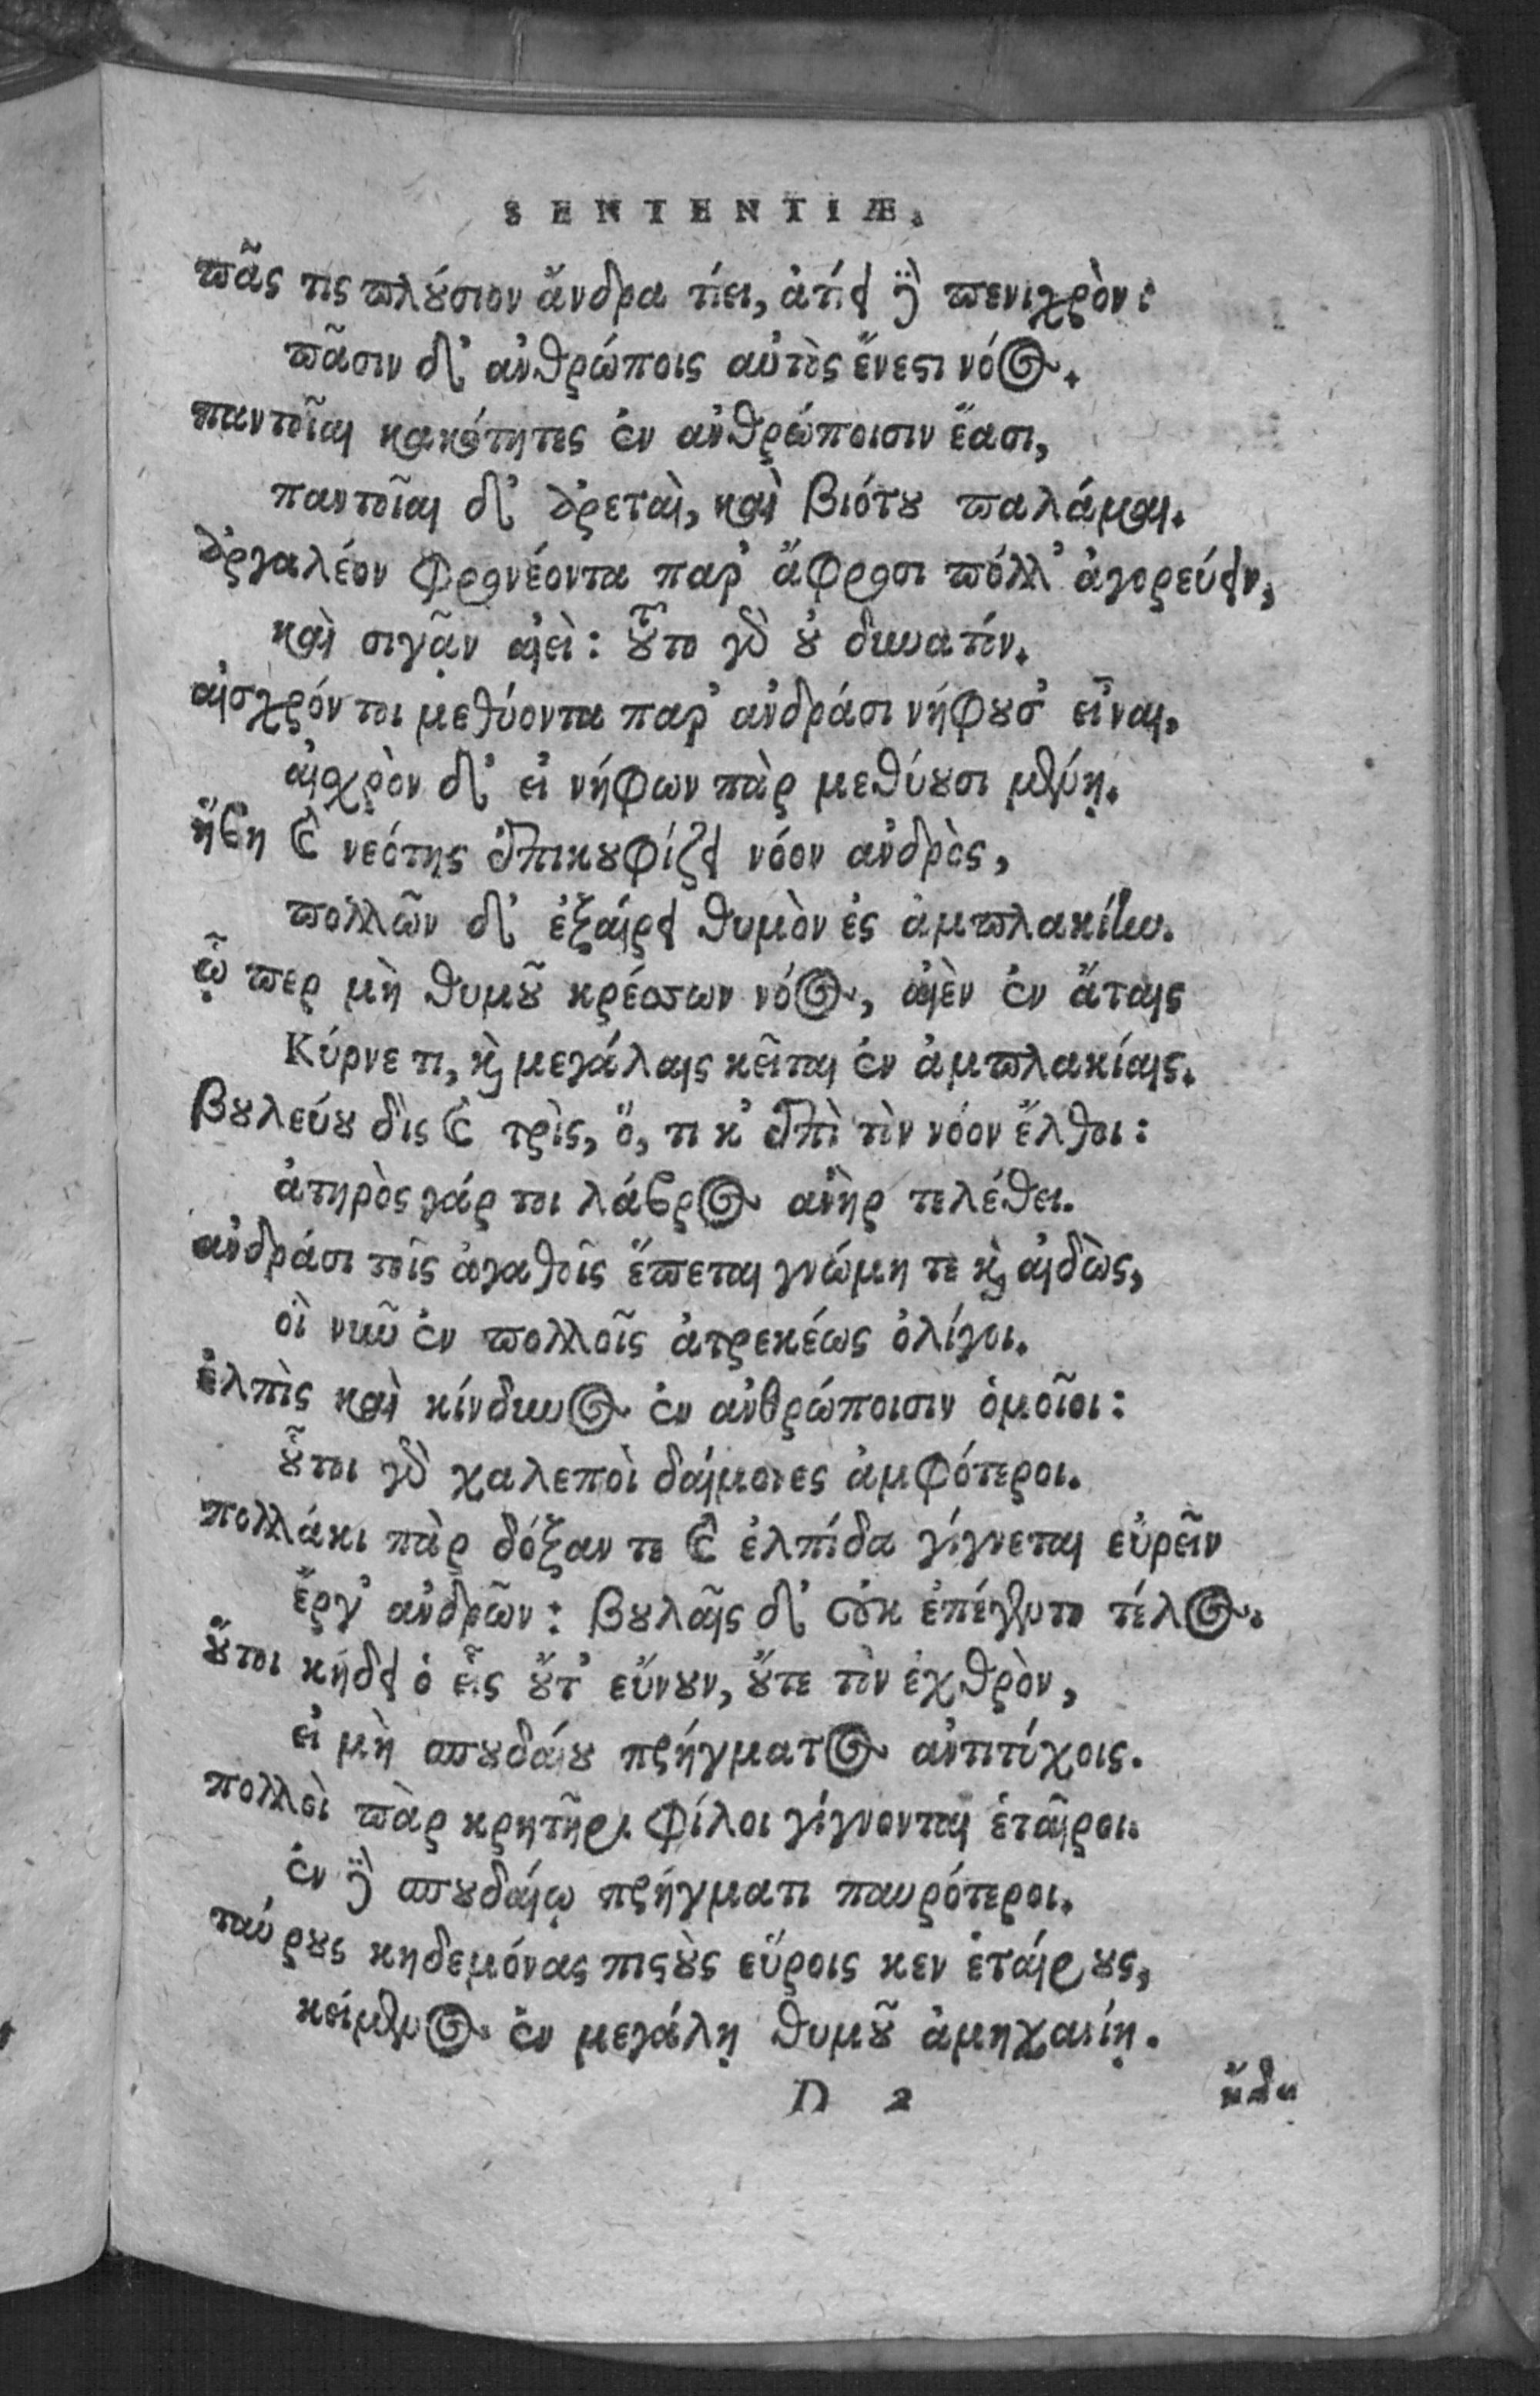 SENTENTIÆ.
πᾶς τις πλούσιον ἄνδρα τίει, ἀτίει δὲ πενιχρὸν:
πᾶσιν δ' ἀνθρώποις αὐτὸς ἔνεστι νόος.
παντοῖαι κακότητες ἐν ἀνθρώποισιν ἔασι,
παντοῖαι δ' ἀρεταὶ, καὶ βιότου παλάμαι.
ἀργαλέον φρονέοντα παρ' ἄφροσι πόλλ' ἀγορεύειν,
καὶ σιγᾶν αἰεὶ: τοῦτο γὰρ οὐ δυνατόν.
αἰσχρόν τοι μεθύοντα παρ' ἀνδράσι νήφουσ' εἶναι,
αἰσχρὸν δ' εἰ νήφων πὰρ μεθύουσι μένῃ.
ἥβη καὶ νεότης ἐπικουφίζει νόον ἀνδρὸς,
πολλῶν δ' ἐξαίρει θυμὸν ἐς ἀμπλακίην.
ᾧ περ μὴ θυμοῦ κρέσσων νόος, αἰὲν ἐν ἄταις
Κύρνε τι, καὶ μεγάλαις κεῖται ἐν ἀμπλακίαις.
βουλεύου δὶς καὶ τρὶς, ὅ, τι κ' ἐπὶ τὸν νόον ἔλθοι:
ἀτηρὸς γάρ τοι λάβρος ἀνὴρ τελέθει.
ἀνδράσι τοῖς ἀγαθοῖς ἕπεται γνώμη τε καὶ αἰδὼς,
οἳ νῦν ἐν πολλοῖς ἀτρεκέως ὀλίγοι.
ἐλπὶς καὶ κίνδυνος ἐν ἀνθρώποισιν ὁμοῖοι:
οὗτοι γὰρ χαλεποὶ δαίμονες ἀμφότεροι.
πολλάκι πὰρ δόξαν τε καὶ ἐλπίδα γίγνεται εὑρεῖν
ἔργ' ἀνδρῶν: βουλαῖς δ' οὐκ ἐπέγεντο τέλος.
οὔτοι κήδει ὁ εἷς οὔτ' εὔνουν, οὔτε τὸν ἐχθρὸν,
εἰ μὴ σπουδαίου πρήγματος ἀντιτύχοις.
πολλοὶ πὰρ κρητῆρι φίλοι γίγνονται ἑταῖροι.
ἐν δὲ σπουδαίῳ πρήγματι παυρότεροι.
παύρους κηδεμόνας πιστοὺς εὕροις κεν ἑταίρους,
κείμενος ἐν μεγάλῃ θυμοῦ ἀμηχανίῃ.
D 2 ἤδη